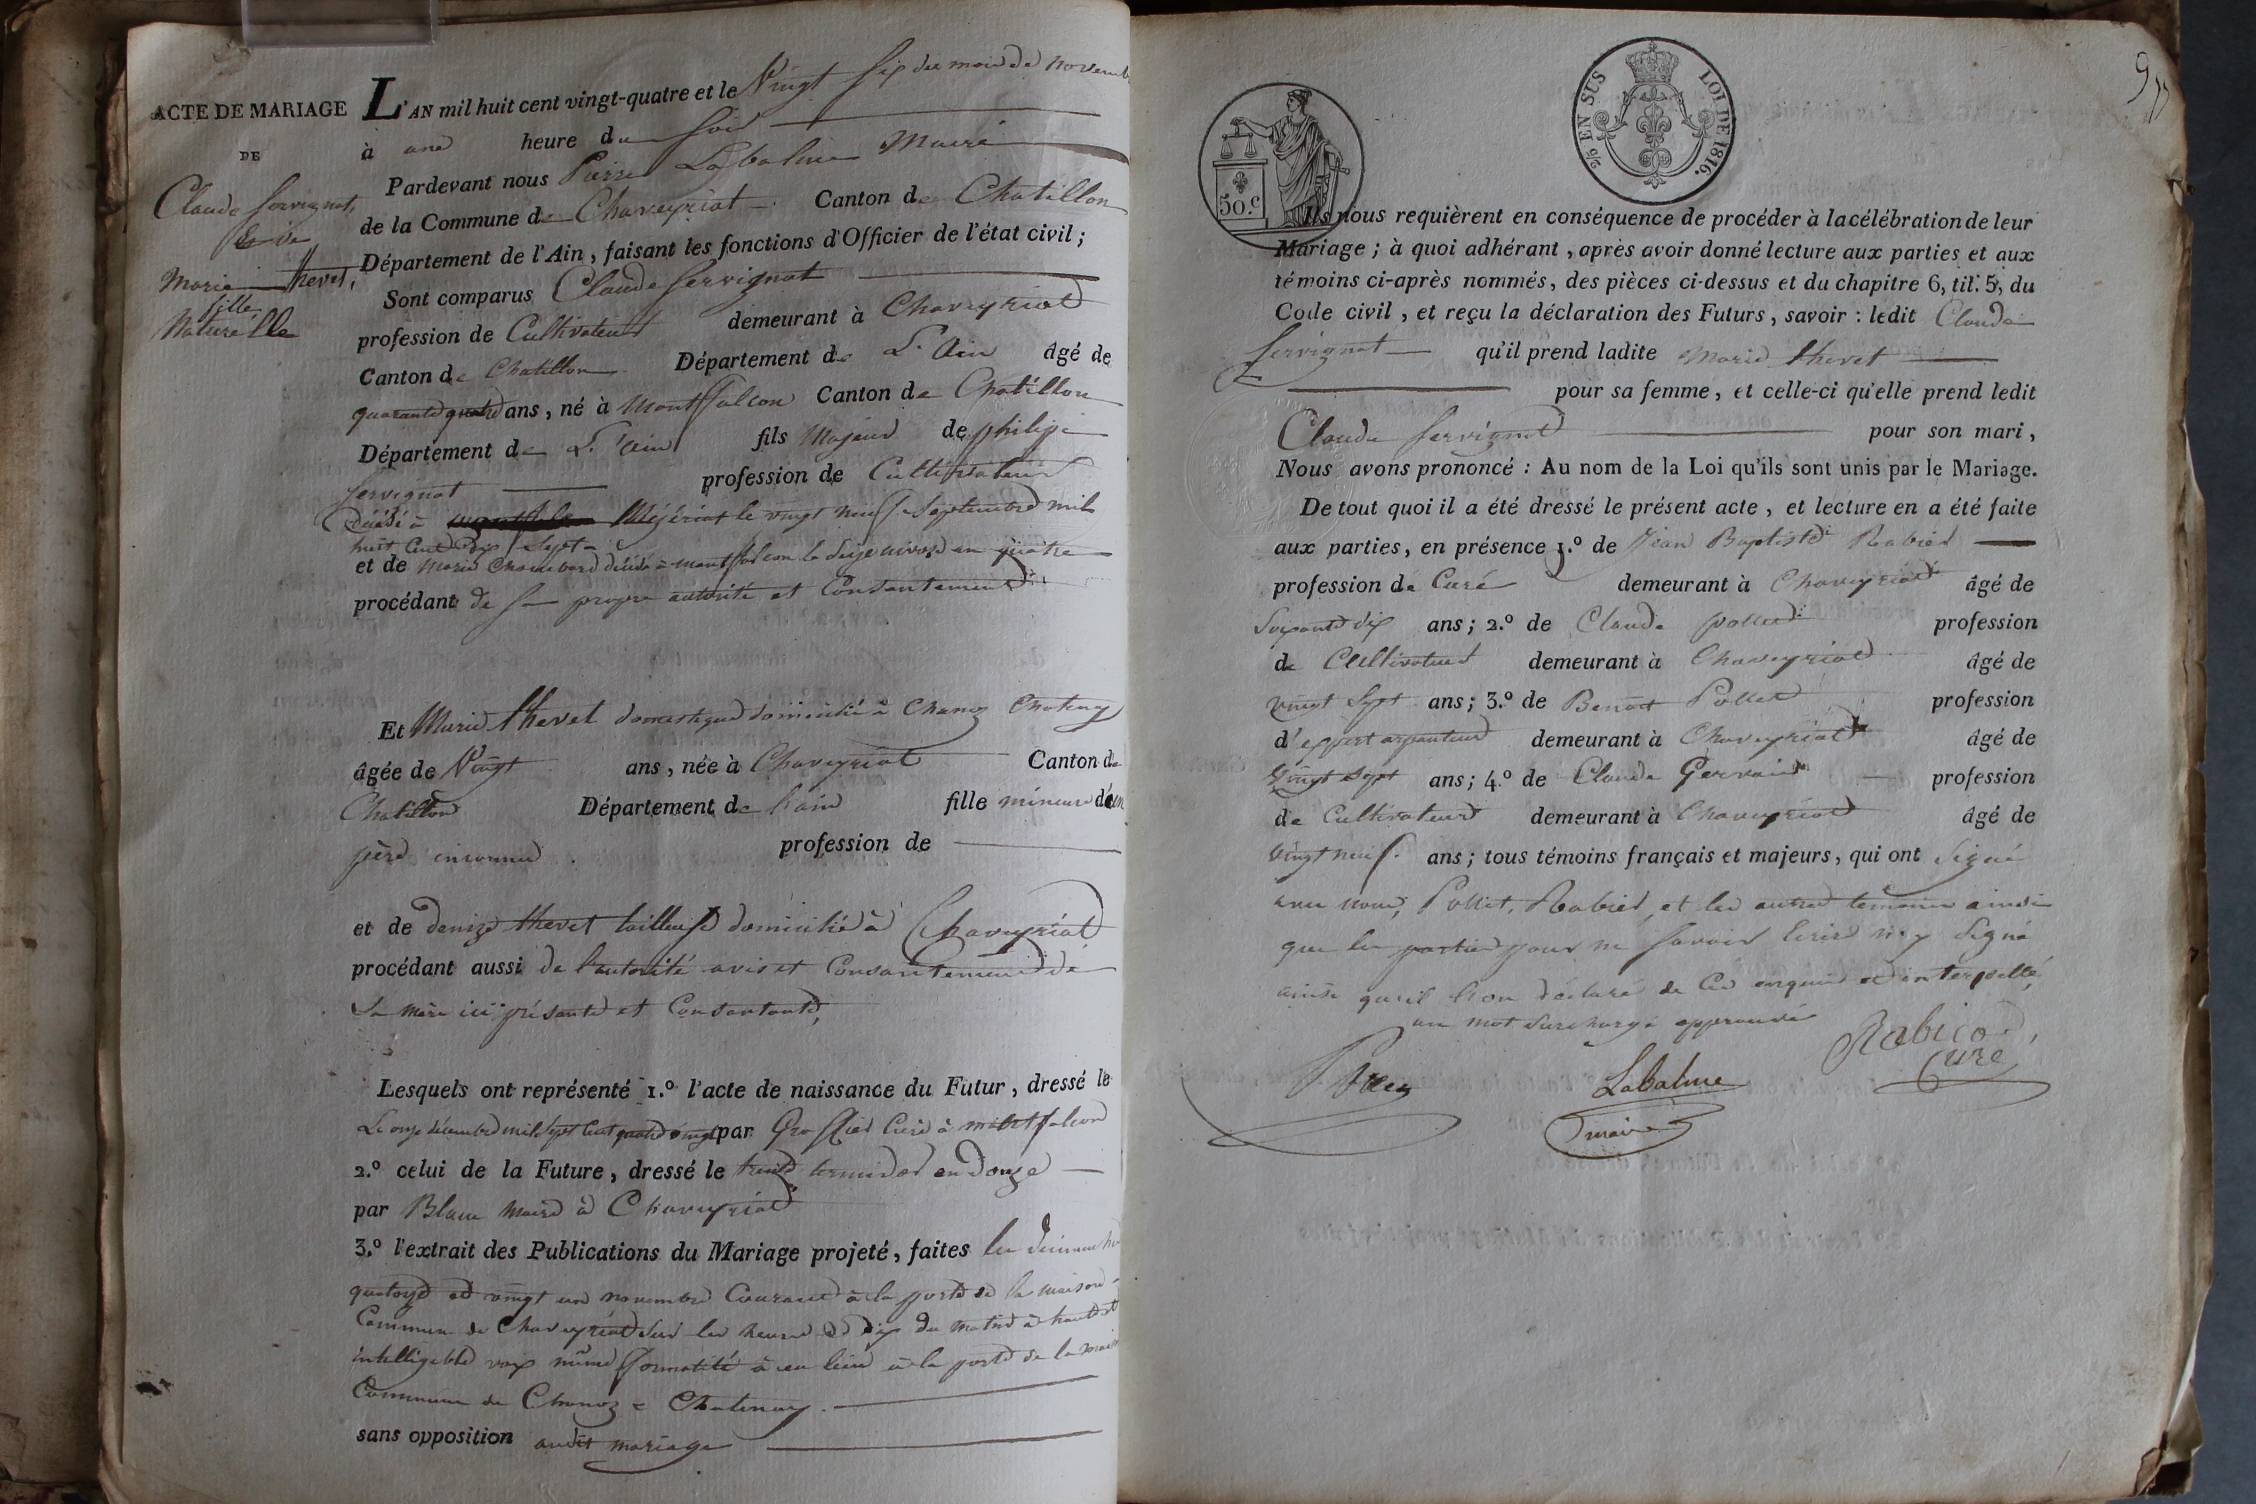 ACTE DE MARIAGE
DE
Claude Servignat,
Et de
Marie thevet,
fille
Naturelle
L'AN mil huit cent vingt-quatre et le Vingt six du mois de novemb
à une heure du soir
Pardevant nous Pierre Labalme Maire
de la Commune de Chaveyriat Canton de Chatillon
Département de l'Ain, faisant les fonctions d'Officier de l'état civil;
Sont comparus Claude Servignat
profession de Cultivateur demeurant à Chaveyriat
Canton de Chatillon Département de L'Ain âgé de
quarante quatre ans, né à Montfalcon Canton de Chatillon
Département de L'ain fils Majeur de philipe
Servignat profession de Cultivateur
décédé à Mézériat le vingt neuf Septembre mil
huit Cent dix Sept
et de Marie décédé à montfalcon le Seize nivose an quatre
procédant de sa propre autorité et Consentement
Et Marie thevet domestique domicilié à Chanoz Chatenay
âgée de Vingt ans, née à Chaveyriat Canton de
Chatillon Département de Lain fille mineure d'un
père inconnu. profession de
et de denize thevet tailleuse domicilié à Chaveyriat
procédant aussi de l'autorité avis et Consentement de
Sa mère ici présante et Consantante,
Lesquels ont représenté 1.º l'acte de naissance du Futur, dressé le
Le onze décembre mil Sept Cent quatre vingt par Curé à montfalcon
2.º celui de la Future, dressé le trente termidor an Douze
par Blanc Maire à Chaveyriat
3.º l'extrait des Publications du Mariage projeté, faites les dimanche
quatorze et vingt un novembre Courant à la porte de la maison
Commune de Chaveyriat sur les heures de dix du matin à haute et
intelligible voix même formalité à eu lieu à la porte de la maison
Commune de Chanoz = Chatenay.
sans opposition audit mariage
9
50.c
EN SUS LOI DE 1816.
Ils nous requièrent en conséquence de procéder à la célébration de leur
Mariage; à quoi adhérant, après avoir donné lecture aux parties et aux
témoins ci-après nommés, des pièces ci-dessus et du chapitre 6, tit. 5, du
Code civil, et reçu la déclaration des Futurs, savoir: ledit Claude
Servignat qu'il prend ladite Marie thevet
pour sa femme, et celle-ci qu'elle prend ledit
Claude Servignat pour son mari,
Nous avons prononcé: Au nom de la Loi qu'ils sont unis par le Mariage.
De tout quoi il a été dressé le présent acte, et lecture en a été faite
aux parties, en présence 1.º de Jean Baptiste Rabier
profession de Curé demeurant à Chaveyriat âgé de
Soixante dix ans; 2.º de Claude pollet profession
de Cultivateur demeurant à Chaveyriat âgé de
vingt Sept ans; 3.º de Benoit Pollet profession
d'expert arpanteur demeurant à Chaveyriat âgé de
Vingt Sept ans; 4.º de Claude Gervais profession
de Cultivateur demeurant à Chaveyriat âgé de
Vingt neuf. ans; tous témoins français et majeurs, qui ont Signé
avec nous, Pollet, Rabier, et les autres temoins ainsi
que les parties pour ne savoir Ecrire n'y Signé
ainsi qu'il l'on déclaré de Ce enquis et interpellé,
un mot Surchargé approuvé
Labalme
maire
Curé